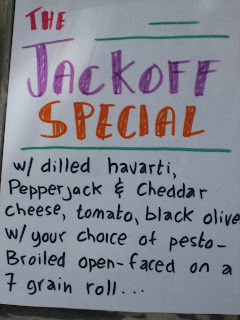 THE
JACKOFF
SPECIAL
w/ dilled havarti,
Pepperjack & Cheddar
cheese, tomato, black olive
w/ your choice of pesto-
Broiled open-faced on a
7 grain roll...